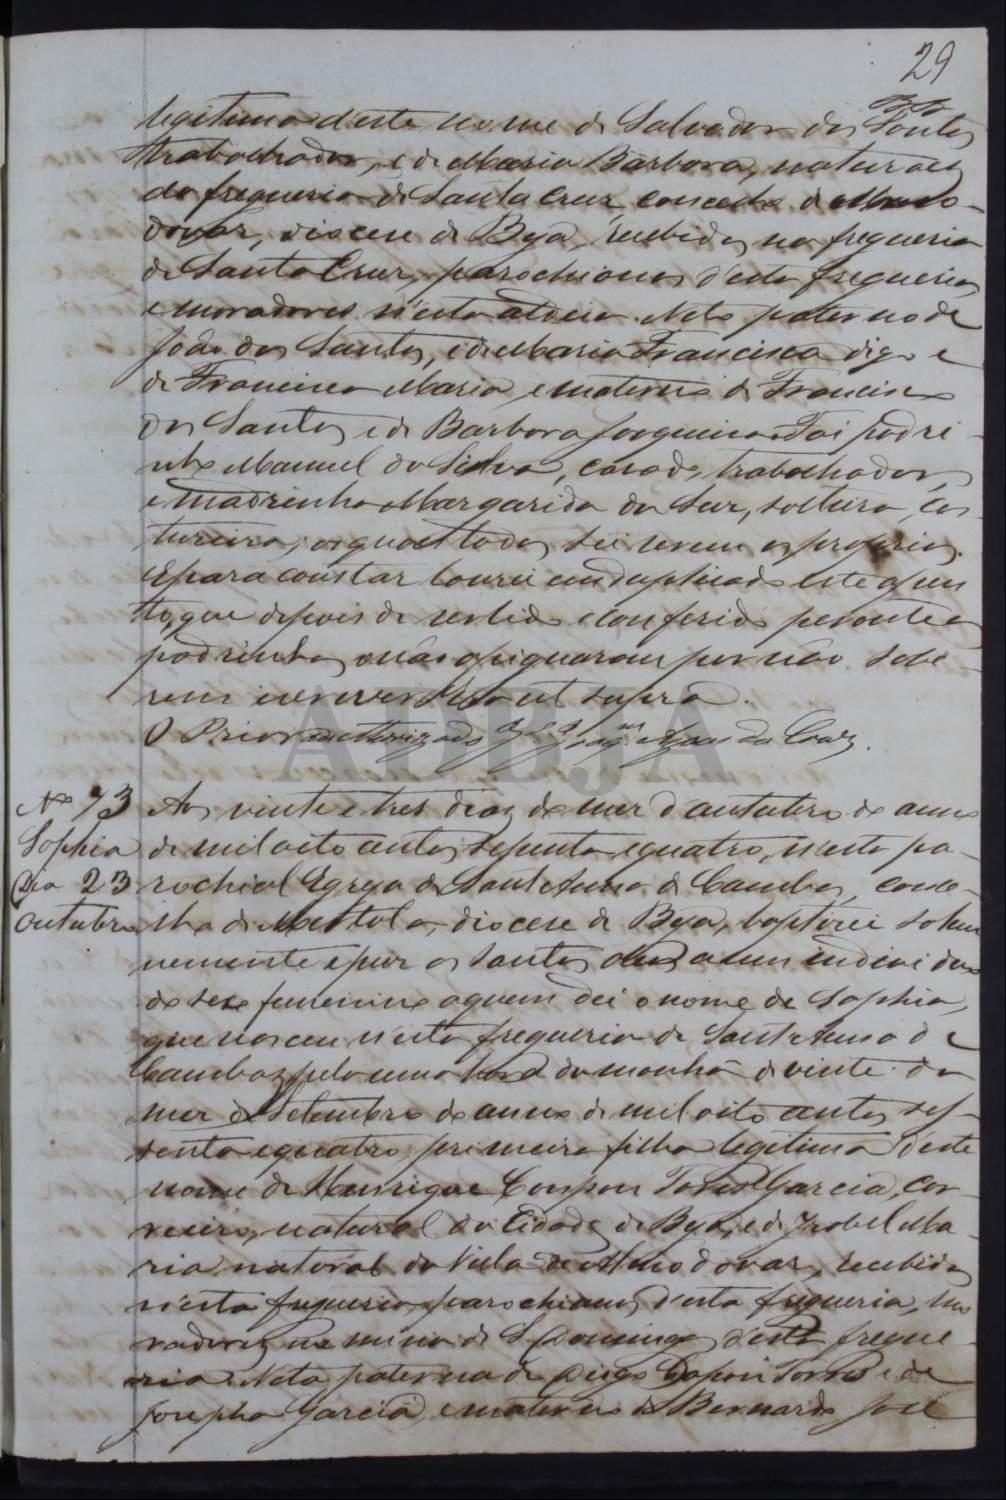 29
legitimo d'este nome de Salvador dos Santos
trabalhador, e de Maria Barbora, naturaes
da freguesia de Santa Cruz, concelho d'Almo-
dovar, diocese de Beja, recebidos na freguesia
de Santa Cruz, parochianos d'esta freguesia,
e moradores n'esta aldeia. Neto paterno de
João dos Santos, e de Maria Francisca digo e
de Francisca Maria, e materno de Francisco
dos Santos e de Barbora Joaquina. Foi padri-
nho Manuel da Silva, casado, trabalhador,
e madrinha Margarida da Luz, solteira, cos-
tureira, os quaes todos sei serem os proprios.
E para constar lavrei em duplicado este assen
to, que depois de ser lido e conferido perante os
padrinhos, o não assignaram por não sabe-
rem escrever. Era ut supra.
O Prior authorizado da Cruz.
ADBJA
Nº 73
Sophia
Dia 23
Outubro
Aos vinte e tres dias do mez d'outubro do anno
de mil oito centos sessenta e quatro, n'esta pa-
rochial Egreja de Sant'Anna de Cambas, conce-
lho de Mertola, diocese de Beja, baptizei solem
nemente e puz os santos oleos a um individuo
do sexo femenino a quem dei o nome de Sophia,
que nasceu n'esta freguesia de Sant'Anna de
Cambas pela uma hora da manhã de vinte do
mez de Setembro do anno de mil oito centos ses-
senta e quatro, primeira filha legitima deste
nome de Henrique Torres Garcia, cor-
reeiro, natural da Cidade de Beja, e de Izabel Ma-
ria natural da Villa de Almodovar, recebidos
n'esta freguesia, parochianos d'esta freguesia, mo
radores na mina de S. Domingos d'esta fregue-
sia. Neta paterna de Diogo Torres e de
Josepha Garcia, e materna de Bernardo José